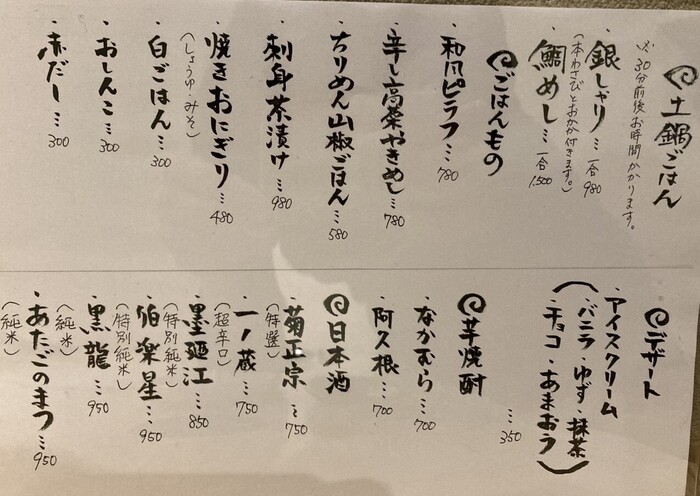 土鍋ごはん
※30分前後お時間かかります。
・銀しゃり…一合980
(本わさびとおかか付きます。)
・鯛めし…一合1,500
ごはんもの
・和風ピラフ…780
・辛し高菜やきめし…780
・ちりめん山椒ごはん…580
・刺身茶漬け…980
・焼きおにぎり…480
(しょうゆ・みそ)
・白ごはん…300
・おしんこ…300
・赤だし…300
デザート
・アイスクリーム
(バニラ・ゆず・抹茶
・チョコ・あまおう)
…350
芋焼酎
・なかむら…700
・阿久根…700
日本酒
・菊正宗…750
(特選)
・一ノ蔵…750
(超辛口)
・墨廼江…850
(特別純米)
・伯楽星…950
(特別純米)
・黒龍…950
(純米)
・あたごのまつ…950
(純米)